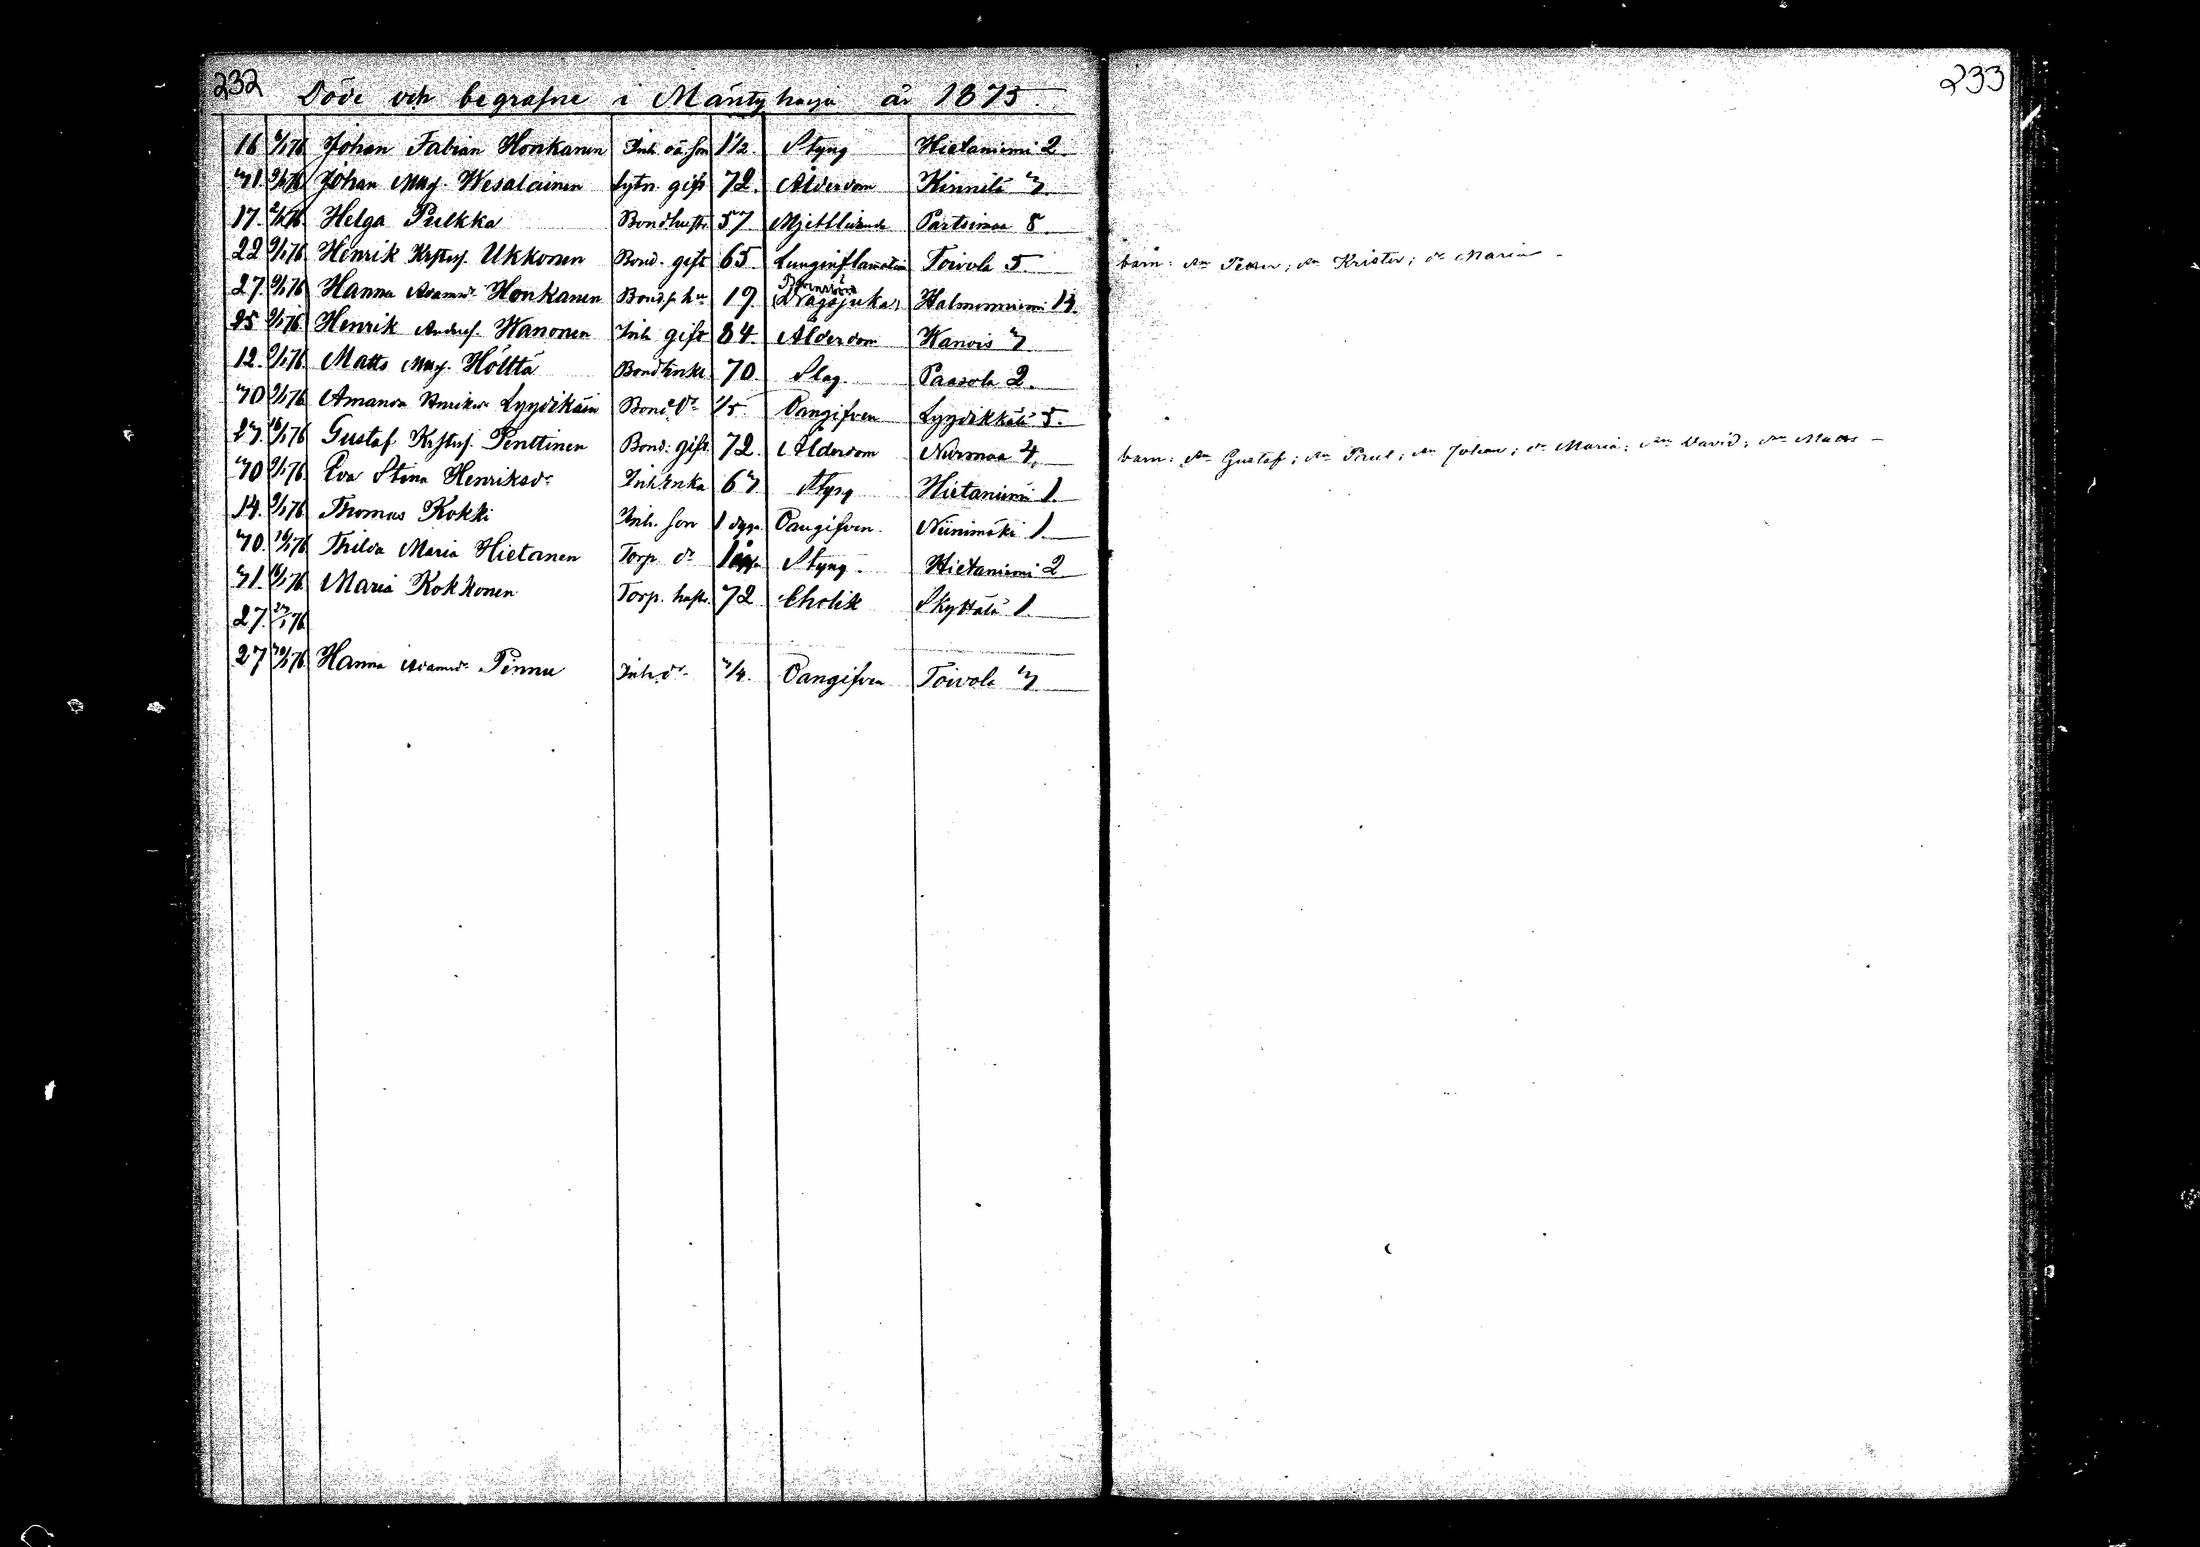 232
Döde och begrafne i Mäntyharju år 1875.
16 6/1 76 Johan Fabian Honkanen Inh. oä. son 1 1/2 Styng Hietaniemi 2
31 9/1 76 Johan Matts. Wesalainen Sytn. gift 72. Ålderdom Kinnilä 3
17. 2/1 76 Helga Pulkka Bondhustr. 57 Mjeltlidande Partsimaa 8
22 9/1 76 Henrik Krsters. Ukkonen Bond. gift 65. Lunginflamation Toivola 5.
27. 9/1 76 Hanna Adamsdr Honkanen Bond. s. hu 19. Barnsbörd (Dragsjuka) Halmeniemi 14.
25 9/1 76 Henrik Anders. Wanonen Inh. gift 84. Ålderdom Wanois 3
12. 9/1 76 Matts Matts. Hölttä Bondenke 70. Slag. Paasola 2.
30 9/1 76 Amanda Henriksdr Lyydikäin Bonde dr 1/5. Oangifven Lyydikkälä 5.
23. 16/1 76 Gustaf Krsters. Penttinen Bond. gift 72. Ålderdom Nurmaa 4.
30 9/1 76 Eva Stina Henriksdr Inh. Enka 63 Styng Hietaniemi 1.
14. 9/1 76 Thomas Kokki Inh. son 1 dygn Oangifven. Niinimäki 1.
30. 16/1 76 Thilda Maria Hietanen Torp. dr 1 år Styng. Hietaniemi 2
31. 16/1 76 Maria Kokkonen Torp. hustr. 72 Cholik Skyttälä 1.
27. 23/1 76
27 30/1 76 Hanna Adamsdr Pennu Inh. dr 3/4. Oangifven Toivola 3
233
barn: sn Petter; sn Krister; dr Maria –
barn: sn Gustaf; sn Paul; sn Johan; dr Maria; sn David; sn Matts –